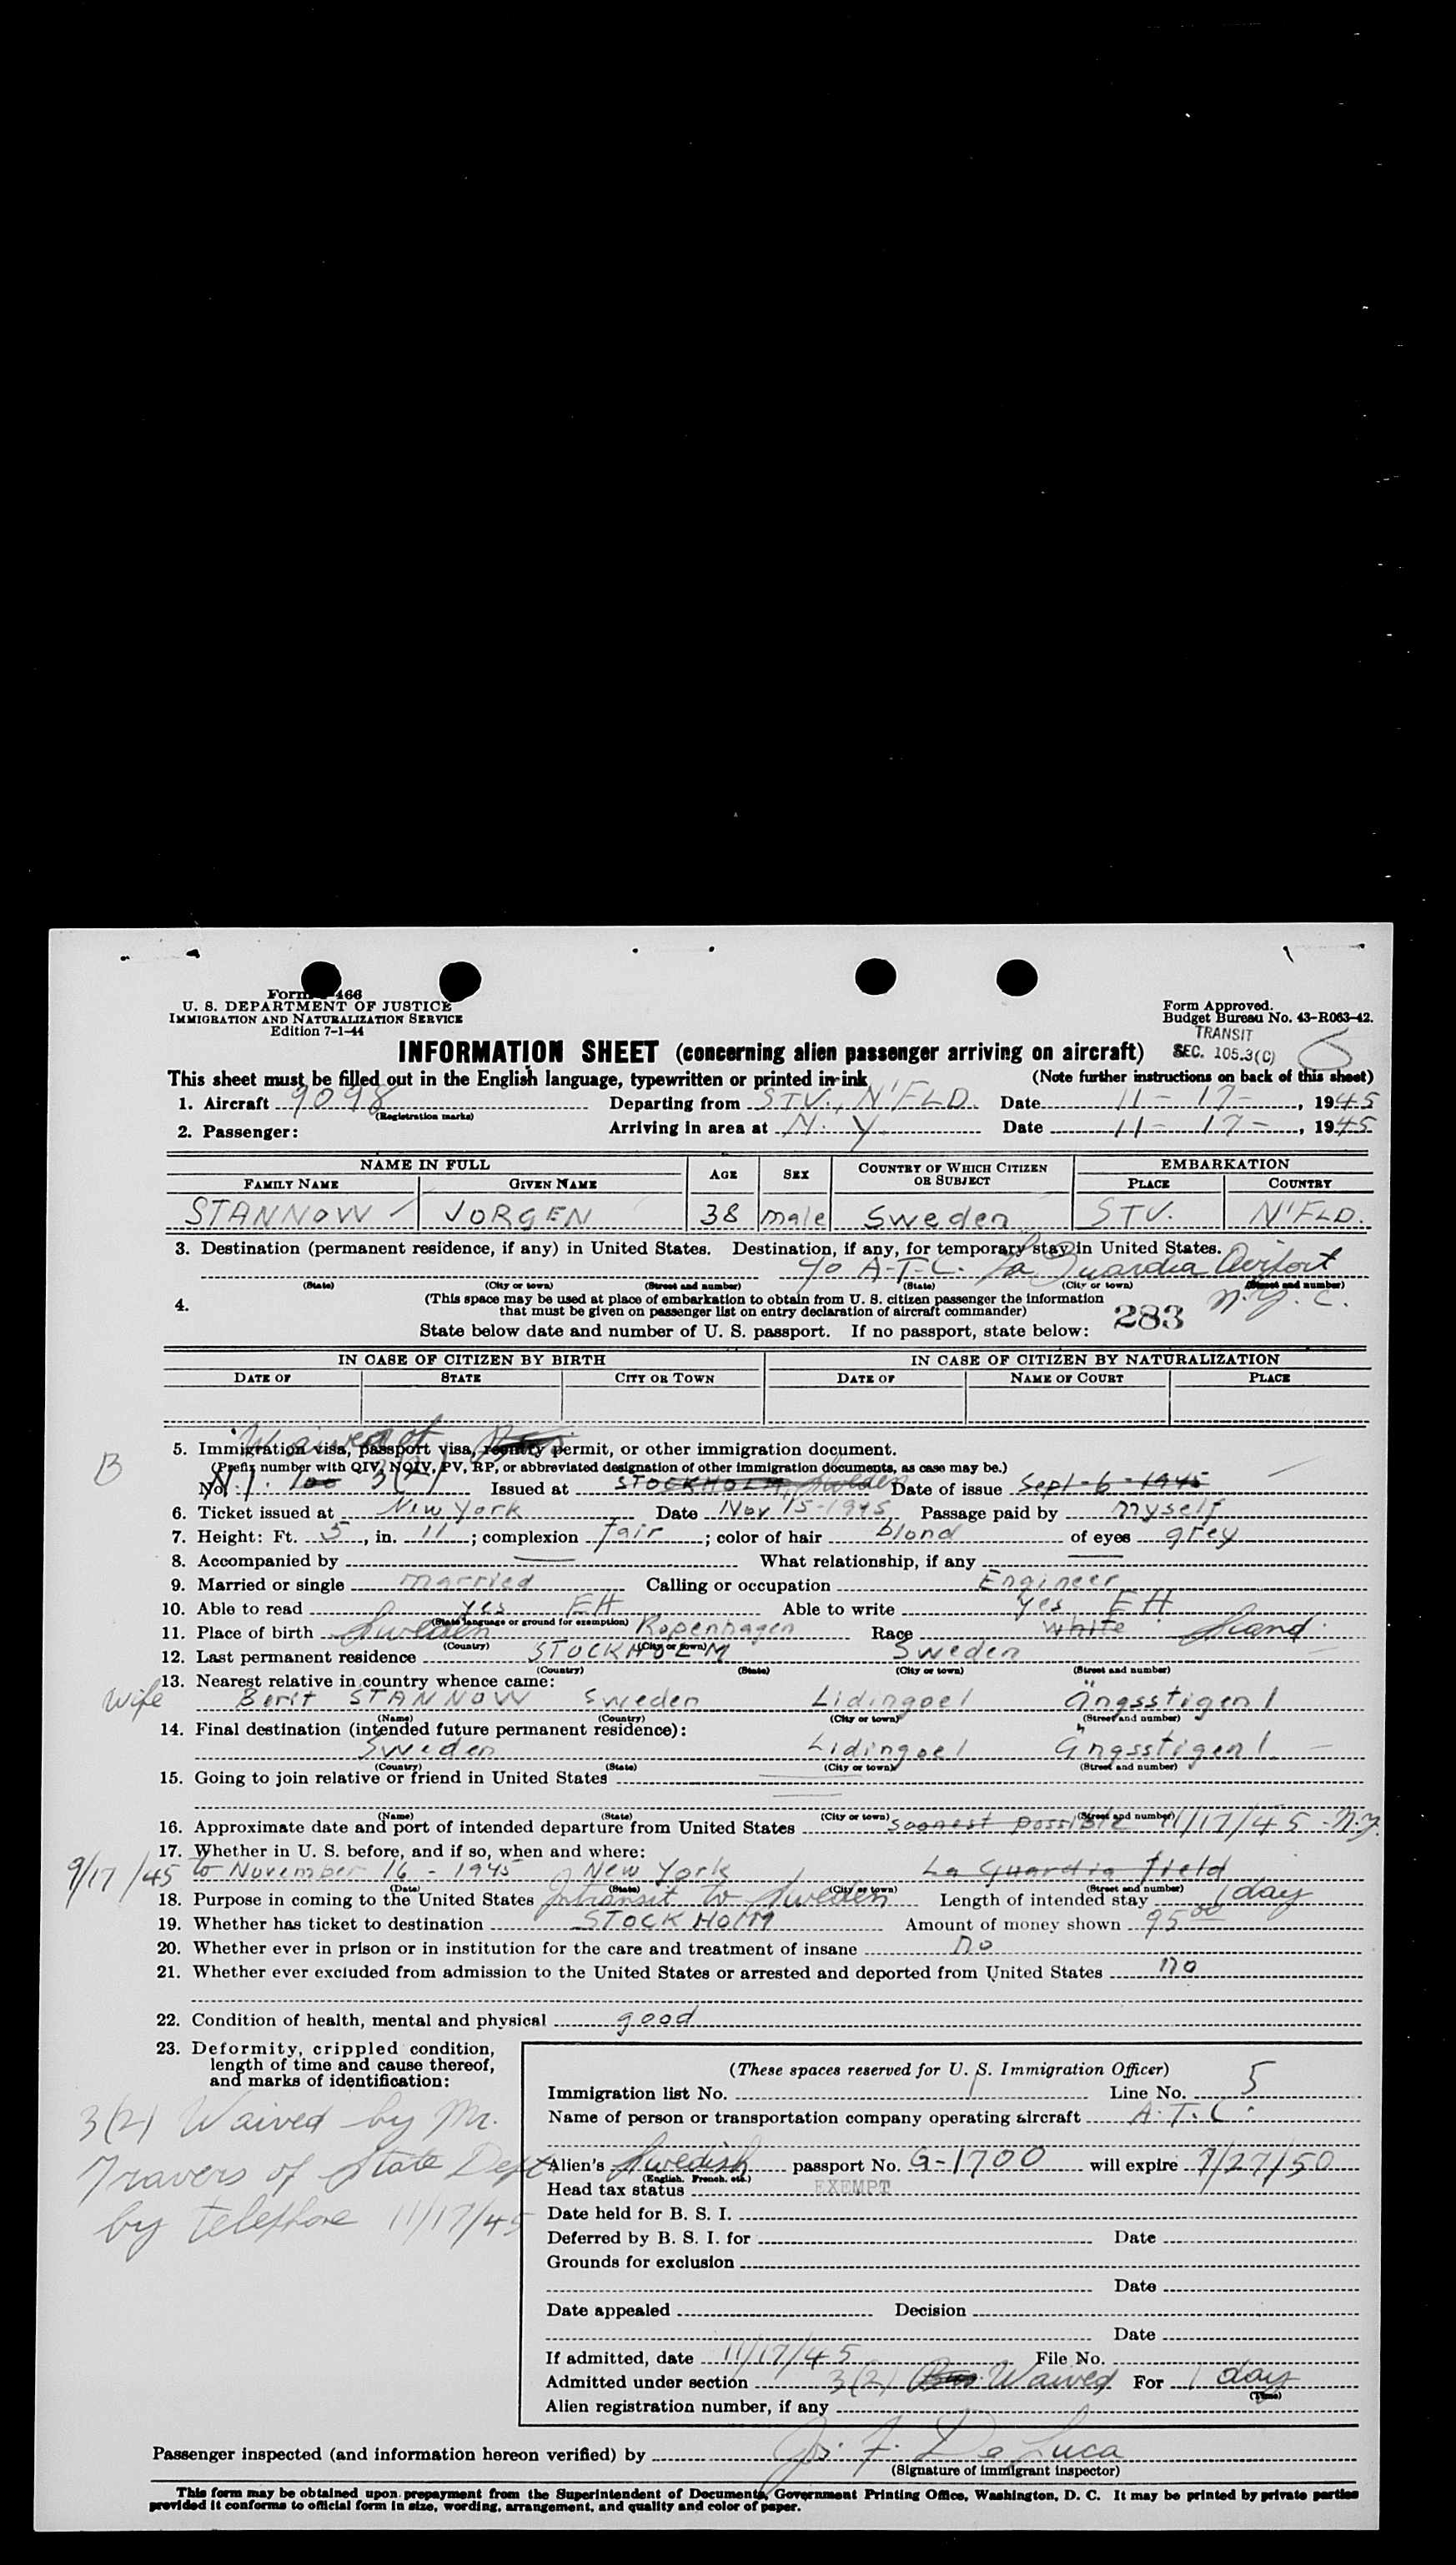 Form 466
U. S. DEPARTMENT OF JUSTICE
IMMIGRATION AND NATURALIZATION SERVICE
Edition 7-1-44
Form Approved.
Budget Bureau No. 43-R063-42.
TRANSIT
SEC. 105.3(C)
INFORMATION SHEET (concerning alien passenger arriving on aircraft)
This sheet must be filled out in the English language, typewritten or printed in ink (Note further instructions on back of this sheet)
1. Aircraft 9098 Departing from STV., N'FLD. Date 11-17-, 1945
(Registration marks)
2. Passenger: Arriving in area at N.Y. Date 11-17-, 1945
NAME IN FULL AGE SEX COUNTRY OF WHICH CITIZEN OR SUBJECT EMBARKATION
FAMILY NAME GIVEN NAME PLACE COUNTRY
STANNOW JORGEN 38 male Sweden STV. N'FLD.
3. Destination (permanent residence, if any) in United States. Destination, if any, for temporary stay in United States.
c/o A-T-C. La Guardia Airport
(State) (City or town) (Street and number) (State) (City or town) (Street and number)
N.Y.C.
4. (This space may be used at place of embarkation to obtain from U. S. citizen passenger the information
that must be given on passenger list on entry declaration of aircraft commander)
283
State below date and number of U. S. passport. If no passport, state below:
IN CASE OF CITIZEN BY BIRTH IN CASE OF CITIZEN BY NATURALIZATION
DATE OF STATE CITY OR TOWN DATE OF NAME OF COURT PLACE
Waived
B
5. Immigration visa, passport visa, reentry permit, or other immigration document.
(Prefix number with QIV, NQIV, PV, RP, or abbreviated designation of other immigration documents, as case may be.)
No. 100 3(2) Issued at STOCKHOLM, Sweden Date of issue Sept-6-1945
6. Ticket issued at New York Date Nov 15-1945 Passage paid by myself
7. Height: Ft. 5, in. 11; complexion fair; color of hair blond of eyes grey
8. Accompanied by What relationship, if any
9. Married or single married Calling or occupation Engineer
10. Able to read yes EH Able to write yes EH
(State language or ground for exemption)
11. Place of birth Sweden Kopenhagen Race white Scand.
(Country) (City or town)
12. Last permanent residence STOCKHOLM Sweden
(Country) (State) (City or town) (Street and number)
13. Nearest relative in country whence came:
wife Berit STANNOW Sweden Lidingoe 1 Ängsstigen 1
(Name) (Country) (City or town) (Street and number)
14. Final destination (intended future permanent residence):
Sweden Lidingoe 1 Ängsstigen 1
(Country) (State) (City or town) (Street and number)
15. Going to join relative or friend in United States
(Name) (State) (City or town) (Street and number)
16. Approximate date and port of intended departure from United States soonest possible 11/17/45 - N.Y.
17. Whether in U. S. before, and if so, when and where:
9/17/45 to November 16 - 1945 New York La Guardia field
(Date) (State) (City or town) (Street and number)
18. Purpose in coming to the United States Intransit to Sweden Length of intended stay 1 day
19. Whether has ticket to destination STOCKHOLM Amount of money shown 95 00
20. Whether ever in prison or in institution for the care and treatment of insane no
21. Whether ever excluded from admission to the United States or arrested and deported from United States no
22. Condition of health, mental and physical good
23. Deformity, crippled condition,
length of time and cause thereof,
and marks of identification:
3(2) Waived by Mr.
Travers of State Dept
by telephone 11/17/45
(These spaces reserved for U. S. Immigration Officer)
Immigration list No. 1 Line No. 5
Name of person or transportation company operating aircraft A.T.C.
Alien's Swedish passport No. G-1700 will expire 7/27/50
(English, French, etc.)
Head tax status EXEMPT
Date held for B. S. I.
Deferred by B. S. I. for Date
Grounds for exclusion
Date
Date appealed Decision
Date
If admitted, date 11/17/45 File No.
Admitted under section 3(2) Waived For 1 day
(Time)
Alien registration number, if any
Passenger inspected (and information hereon verified) by Jos. F. De Luca
(Signature of immigrant inspector)
This form may be obtained upon prepayment from the Superintendent of Documents, Government Printing Office, Washington, D. C. It may be printed by private parties
provided it conforms to official form in size, wording, arrangement, and quality and color of paper.